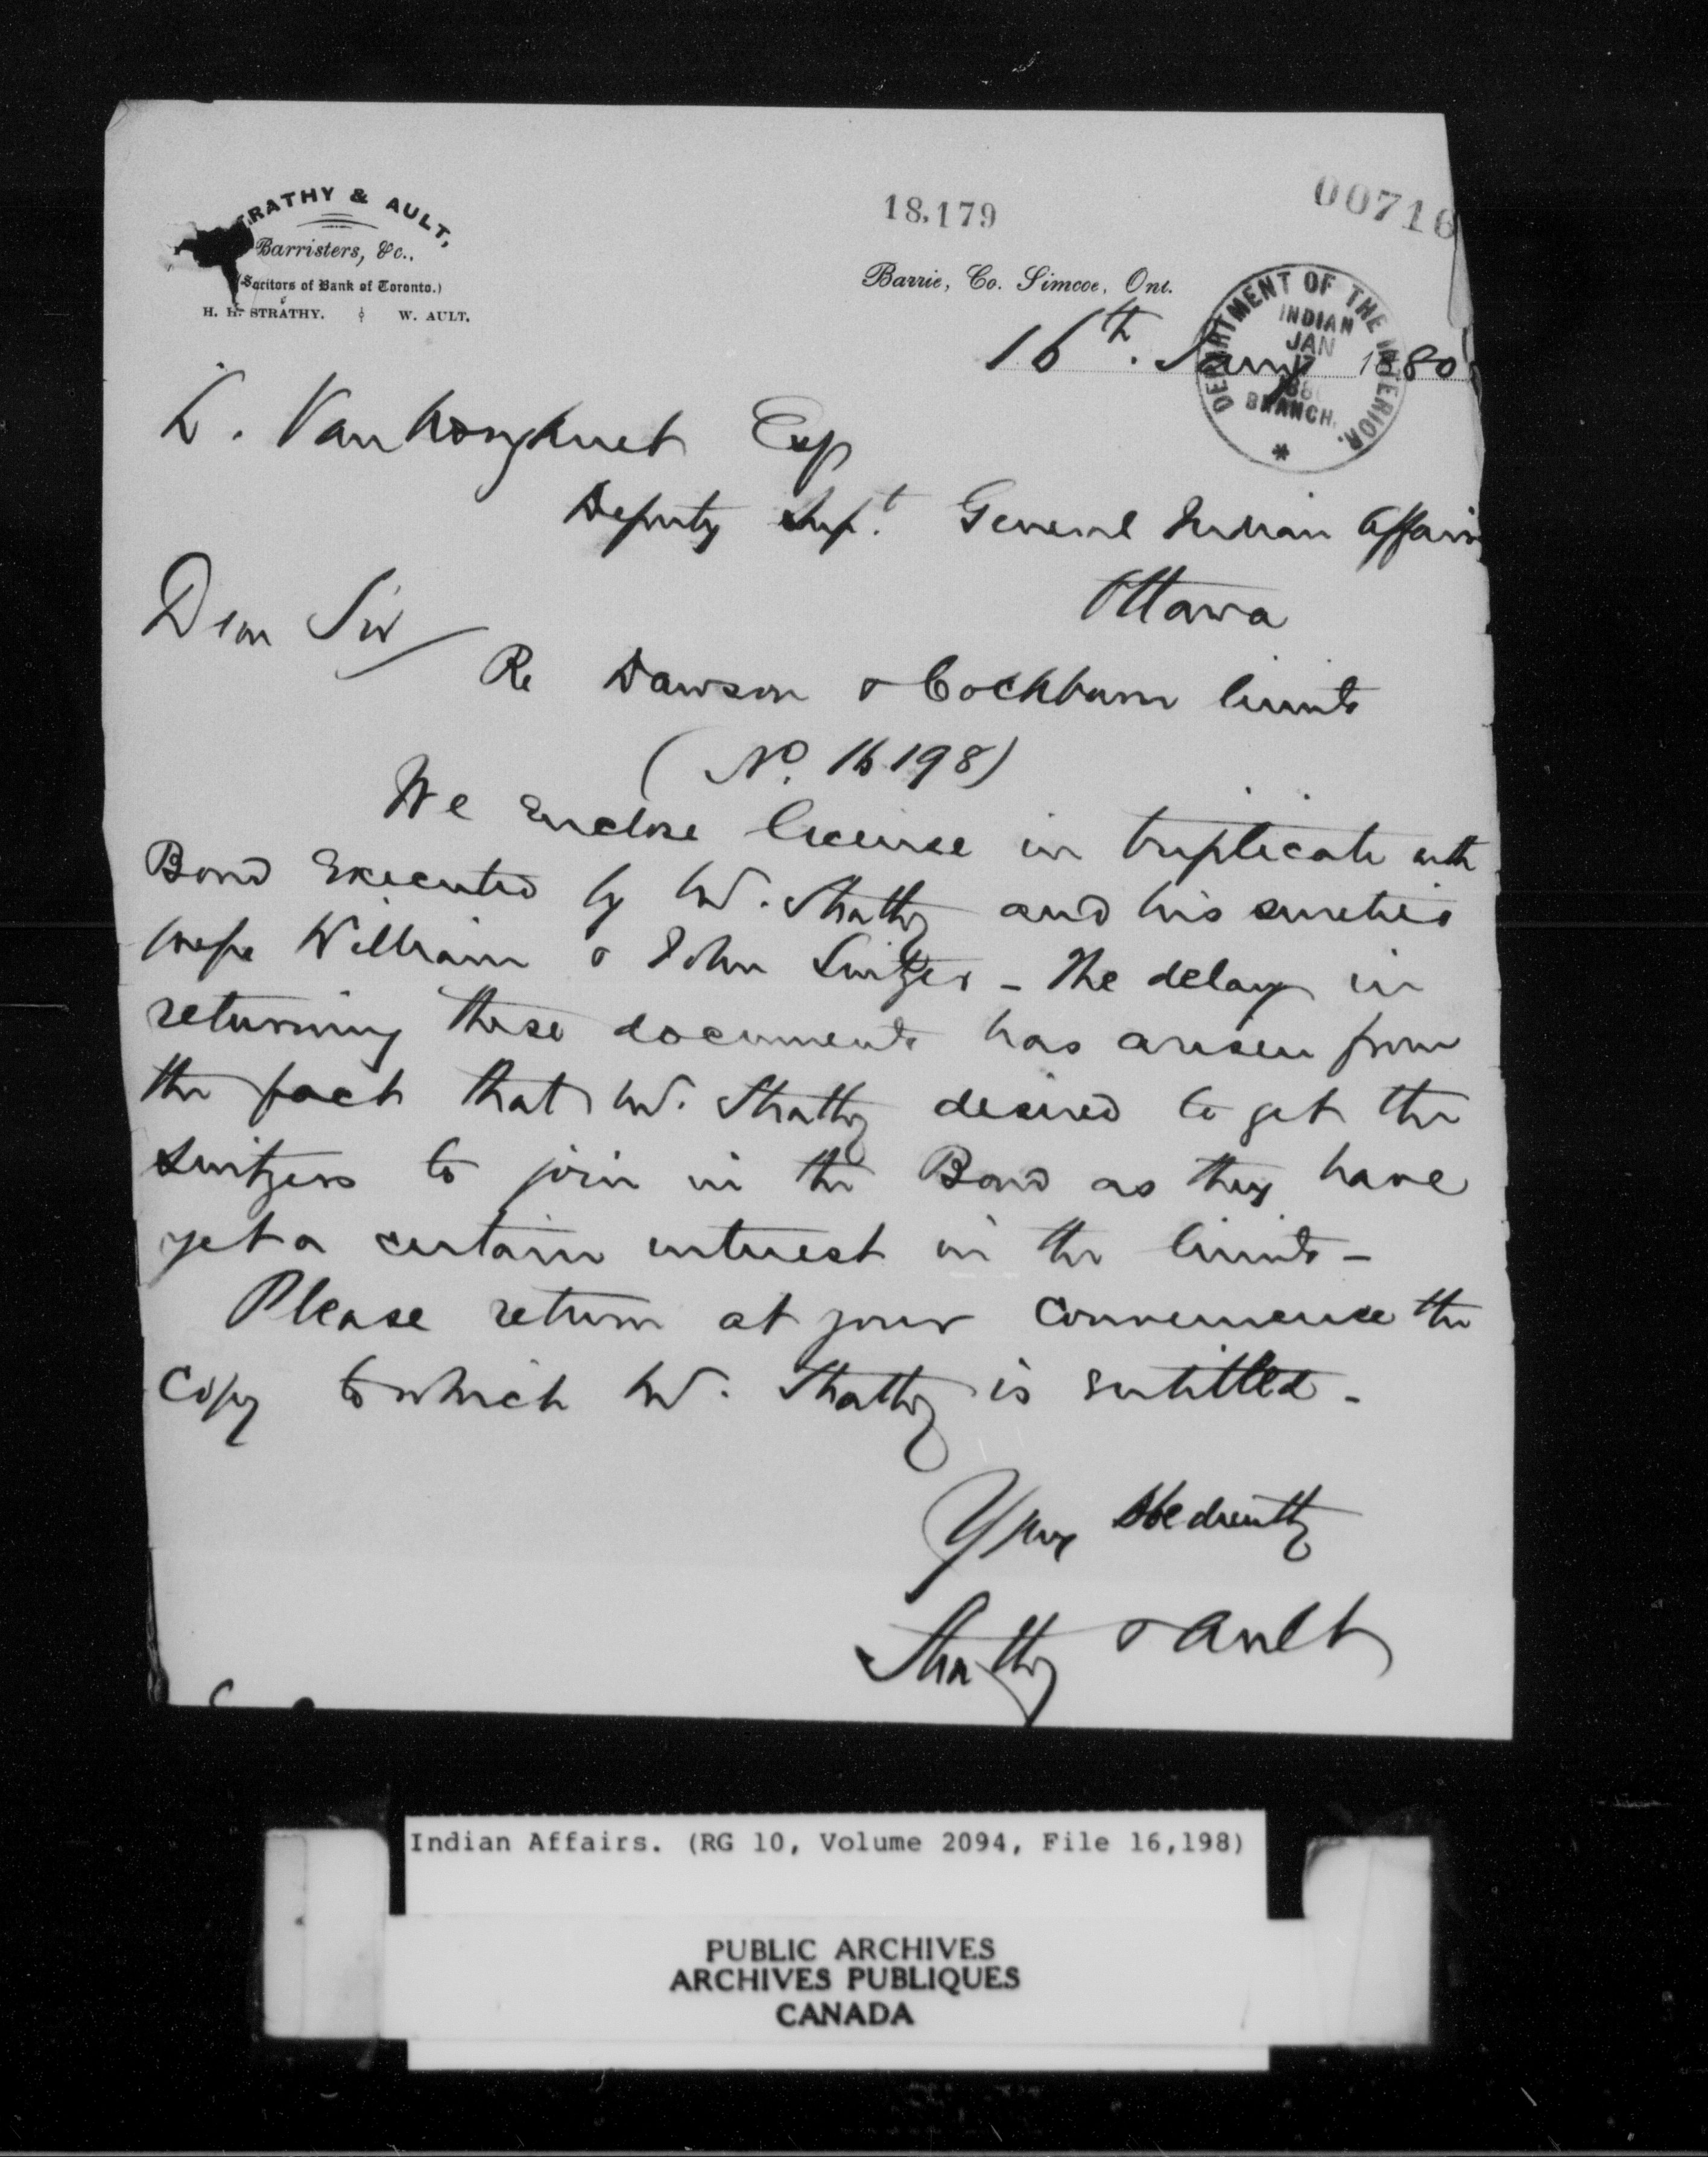 RATHY & AULT,
Barristers, &c.,
(Soicitors of Bank of Toronto.)
H. H. STRATHY. W. AULT.
18.179
00716
Barrie, Co. Simcoe, Ont.
16th. Jany 1880
DEPARTMENT OF THE INTERIOR.
INDIAN
JAN
17
188
BRANCH.
*
L. Vankoughnet Esq
Deputy Supt. General Indian Affairs
Ottawa
Dear Sir
Re Dawson & Cockburn limits
(No. 16198)
We enclose license in triplicate with
Bond Executed by Mr. Strathy and his sureties
William & John Switzer - The delay in
returning these documents has arisen from
the fact that Mr. Strathy desired to get the
Switzers to join in the Bond as they have
yet a certain interest in the limits -
Please return at your convenience the
Copy to which Mr. Strathy is entitled -
Yours Obediently
Strathy & Ault
Indian Affairs. (RG 10, Volume 2094, File 16,198)
PUBLIC ARCHIVES
ARCHIVES PUBLIQUES
CANADA